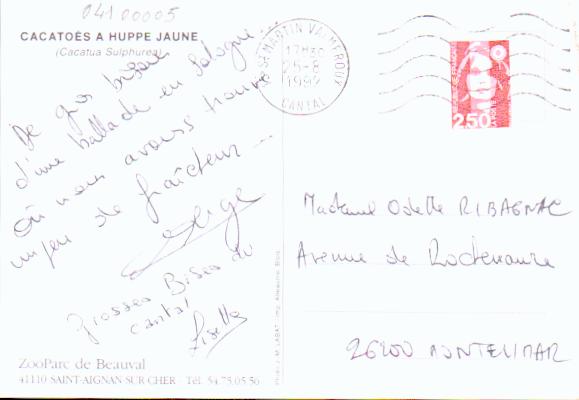 04100005
CACATOÈS A HUPPE JAUNE
(Cacatua Sulphurea)
De gros bisous
d'une ballade en Sologne ...
où nous avons trouvé
un peu de fraîcheur ...
Serge
Grosses Bises du
cantal
Lisette
ZooParc de Beauval
41110 SAINT-AIGNAN-SUR-CHER - Tél. 54.75.05.56
Photo J.-M. LABAT / Imp. Blois
ST MARTIN VALMEROUX
17H30
25-8
CANTAL
2,50
Madame Odette RIBAGNAC
Avenue de Rochemaure
26200 MONTELIMAR